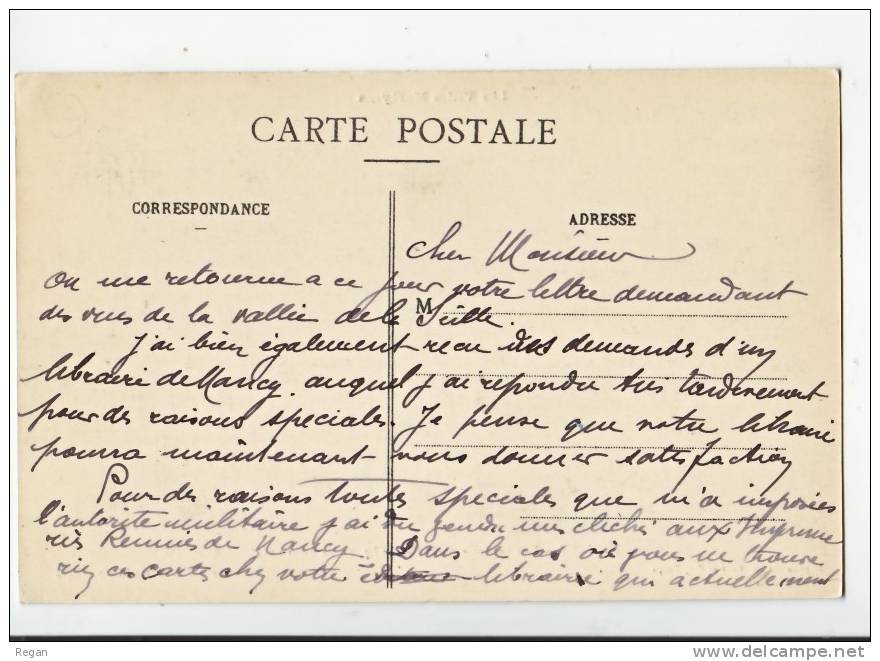 CARTE POSTALE
CORRESPONDANCE
ADRESSE
Cher Monsieur
M
On me retourne a ce jour votre lettre demandant
des vues de la vallée de la Seille.
J'ai bien également recu des demandes d'un
libraire de Nancy auquel j'ai repondu tres tardivement
pour des raisons speciales. Je pense que votre libraire
pourra maintenant vous donner satisfaction
Pour des raisons toutes speciales que m'a imposées
l'autorité militaire j'ai du vendu mes clichés aux Imprime
ries Reunies de Nancy. Dans le cas où vous ne trouve
riez ces cartes chez votre libraire qui actuellement
Regan
www.delcampe.net